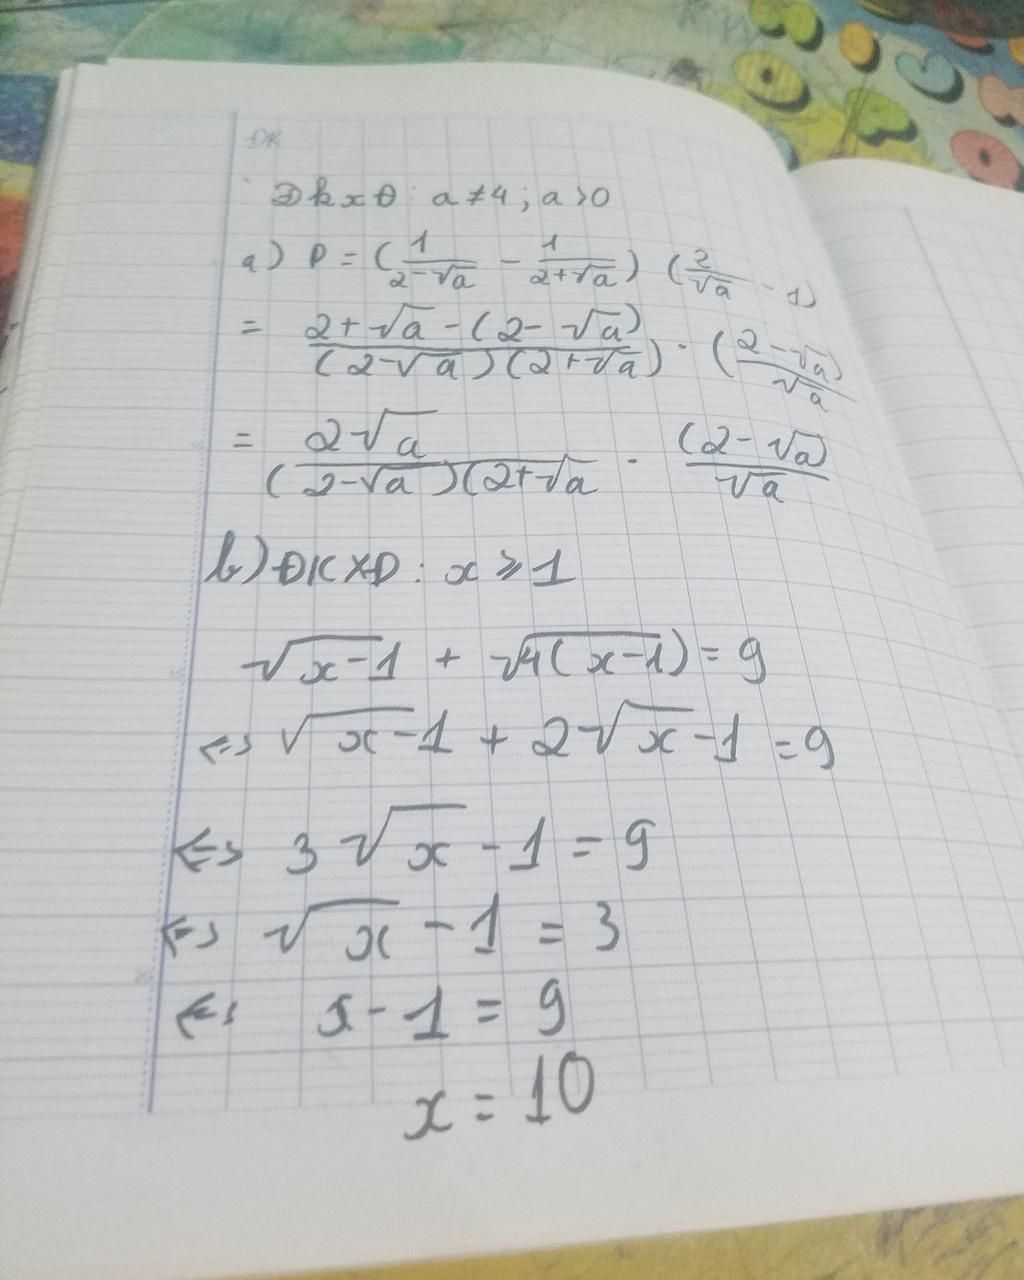 ĐK
Đkxđ: a ≠ 4; a > 0
a) P = (1/(2-√a) - 1/(2+√a)) (2/√a - 1)
= (2+√a-(2-√a))/((2-√a)(2+√a)) . ((2-√a)/√a)
= 2√a/((2-√a)(2+√a) . (2-√a)/√a
b) ĐKXĐ: x ⩾ 1
√(x-1) + √(4(x-1)) = 9
<=> √(x-1) + 2√(x-1) = 9
<=> 3√(x-1) = 9
<=> √(x-1) = 3
<=> x-1 = 9
x = 10